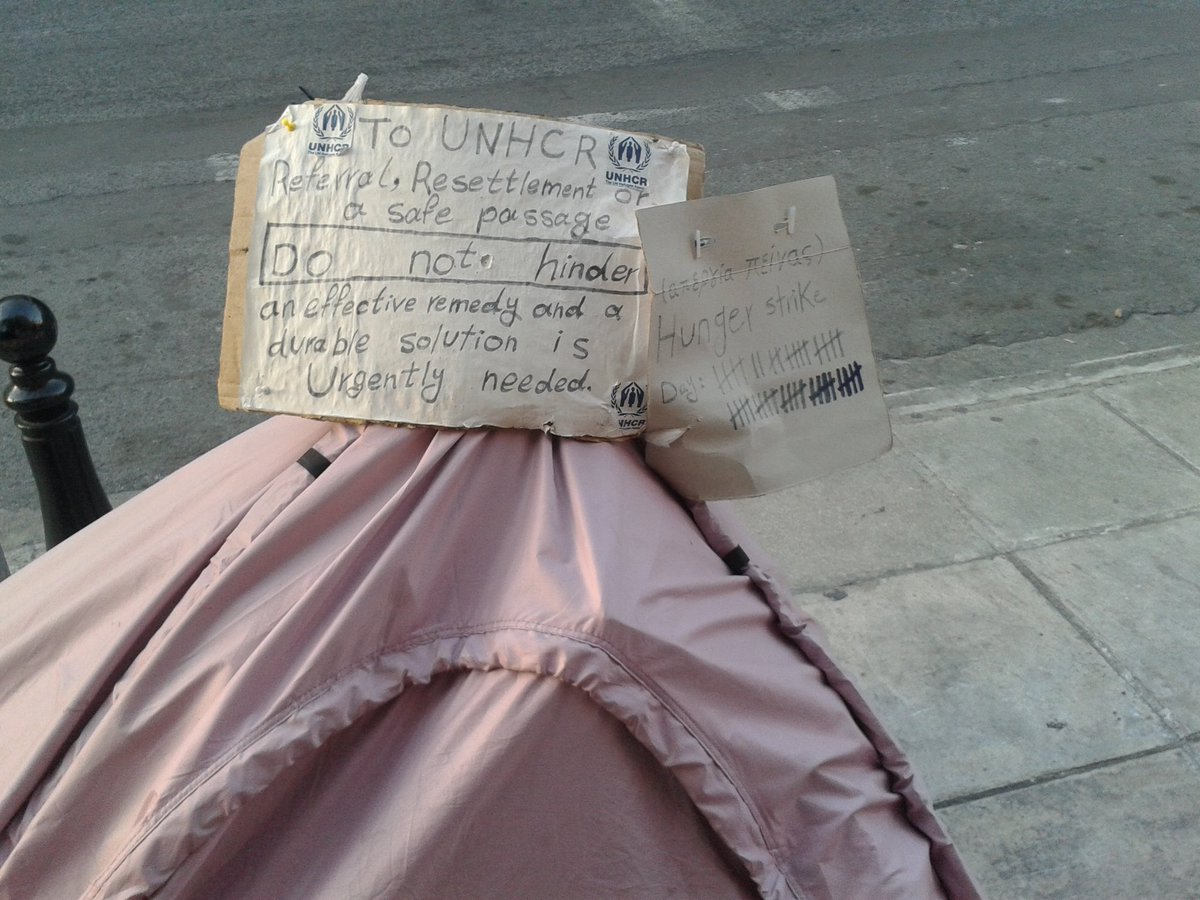 UNHCR
To UNHCR
UNHCR
Referral, Resettlement or
a safe passage
Do not hinder
an effective remedy and a
durable solution is
Urgently needed.
UNHCR
(απεργία πείνας)
Hunger strike
Day: